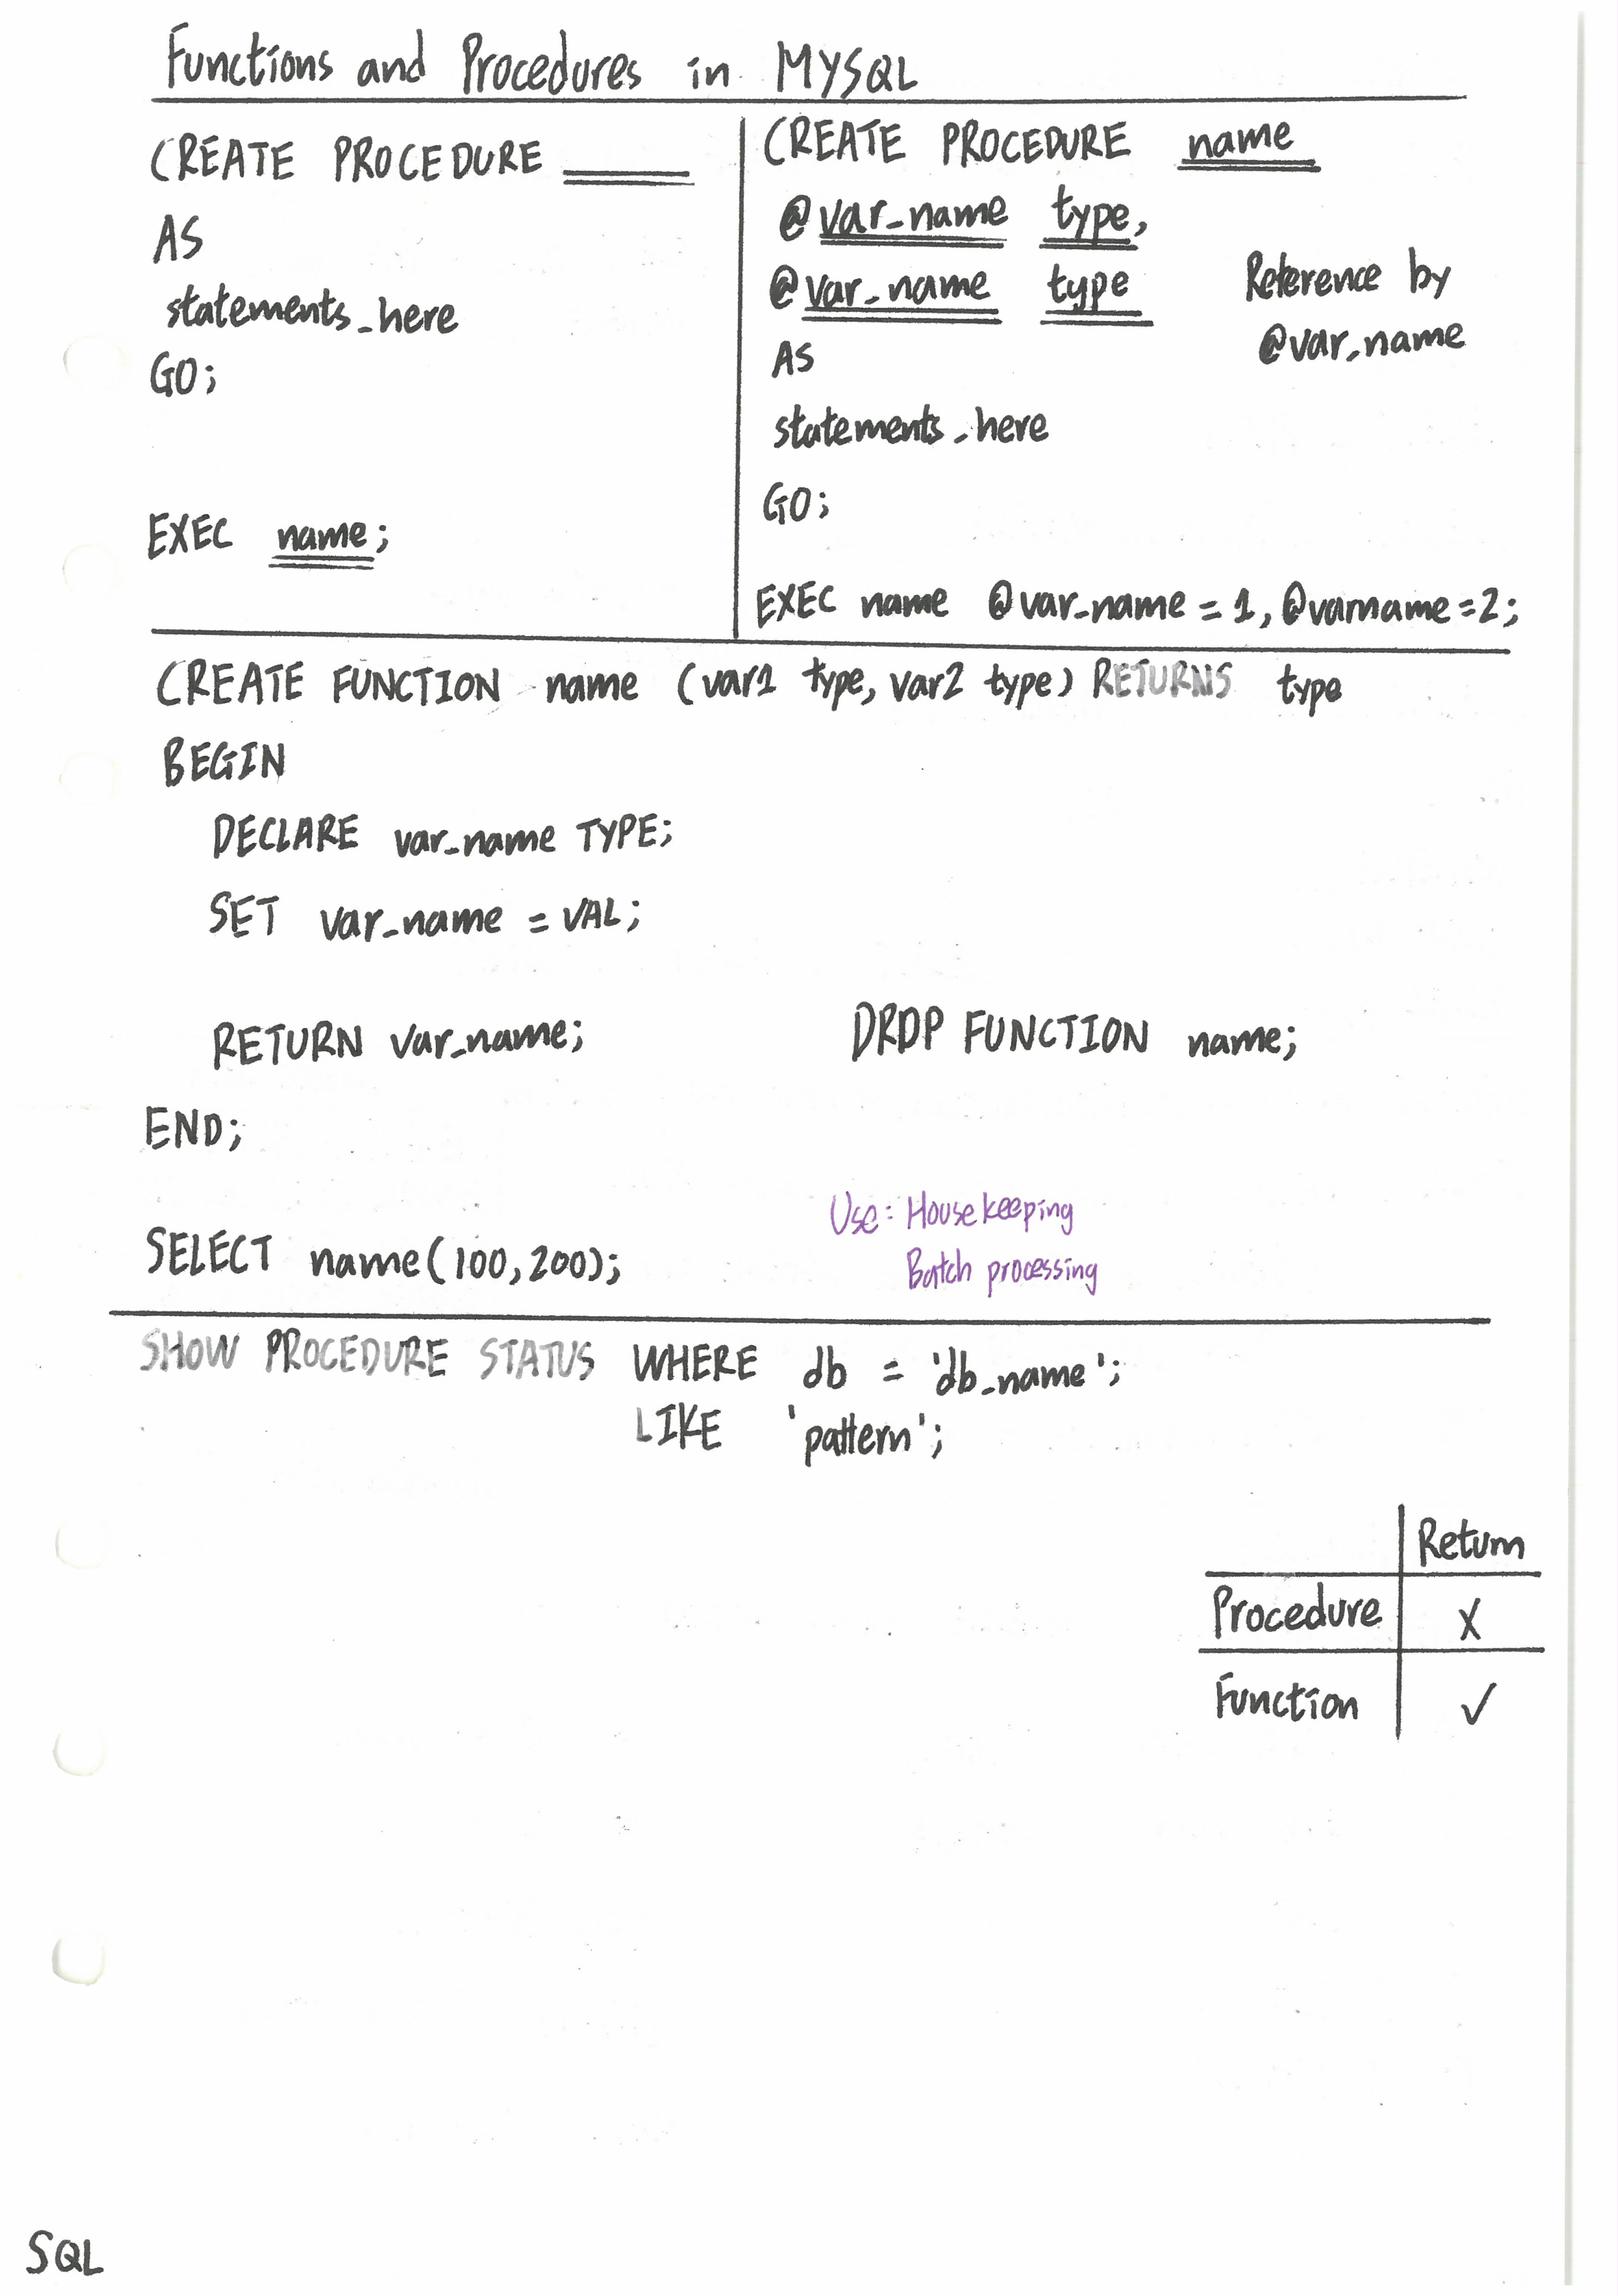 Functions and Procedures in MYSQL
CREATE PROCEDURE
AS
statements_here
GO;
EXEC name;
CREATE PROCEDURE name
@var_name type,
@var_name type
Reference by
@var_name
AS
statements_here
GO;
EXEC name @var_name = 1, @varname = 2;
CREATE FUNCTION name (var1 type, var2 type) RETURNS type
BEGIN
DECLARE var_name TYPE;
SET var_name = VAL;
RETURN var_name;
DROP FUNCTION name;
END;
SELECT name(100,200);
Use: Housekeeping
Batch processing
SHOW PROCEDURE STATUS WHERE db = 'db_name';
LIKE 'pattern';
Return
Procedure X
Function ✓
SQL